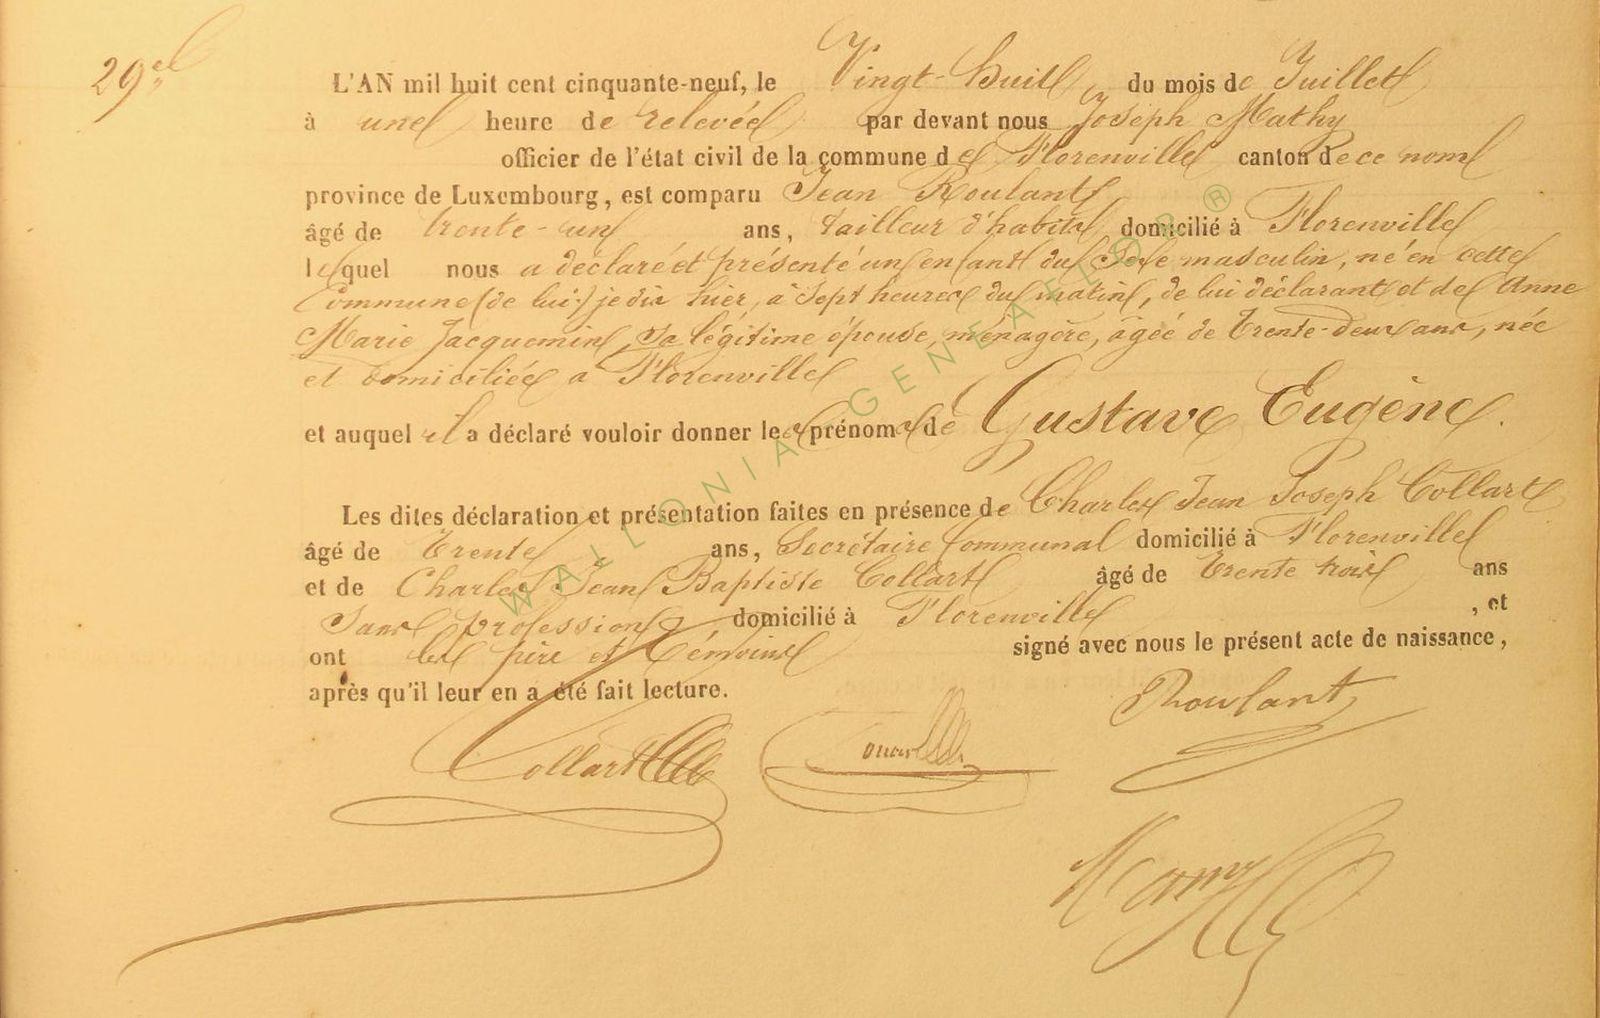 29e
L'AN mil huit cent cinquante-neuf, le Vingt-huit, du mois de Juillet
à une heure de relevée par devant nous Joseph Mathy
officier de l'état civil de la commune de Florenville canton de ce nom
province de Luxembourg, est comparu Jean Roulant
âgé de trente-un ans, tailleur d'habits domicilié à Florenville
lequel nous a déclaré et présenté un enfant du Sexe masculin, né en cette
Commune (de lui) je dis hier, à Sept heures du matin, de lui déclarant et de Anne
Marie Jacquemin, Sa légitime épouse, ménagère, âgée de trente-deux ans, née
et domiciliée à Florenville
et auquel il a déclaré vouloir donner les prénoms de Gustave Eugène.
Les dites déclaration et présentation faites en présence de Charles Jean Joseph Collart
âgé de trente ans, Secrétaire Communal domicilié à Florenville
et de Charles Jean Baptiste Collart âgé de trente trois ans
Sans profession domicilié à Florenville, et
ont les père et témoins signé avec nous le présent acte de naissance,
après qu'il leur en a été fait lecture.
Roulant
Collart
WALLONIA GENEAFLOR ®